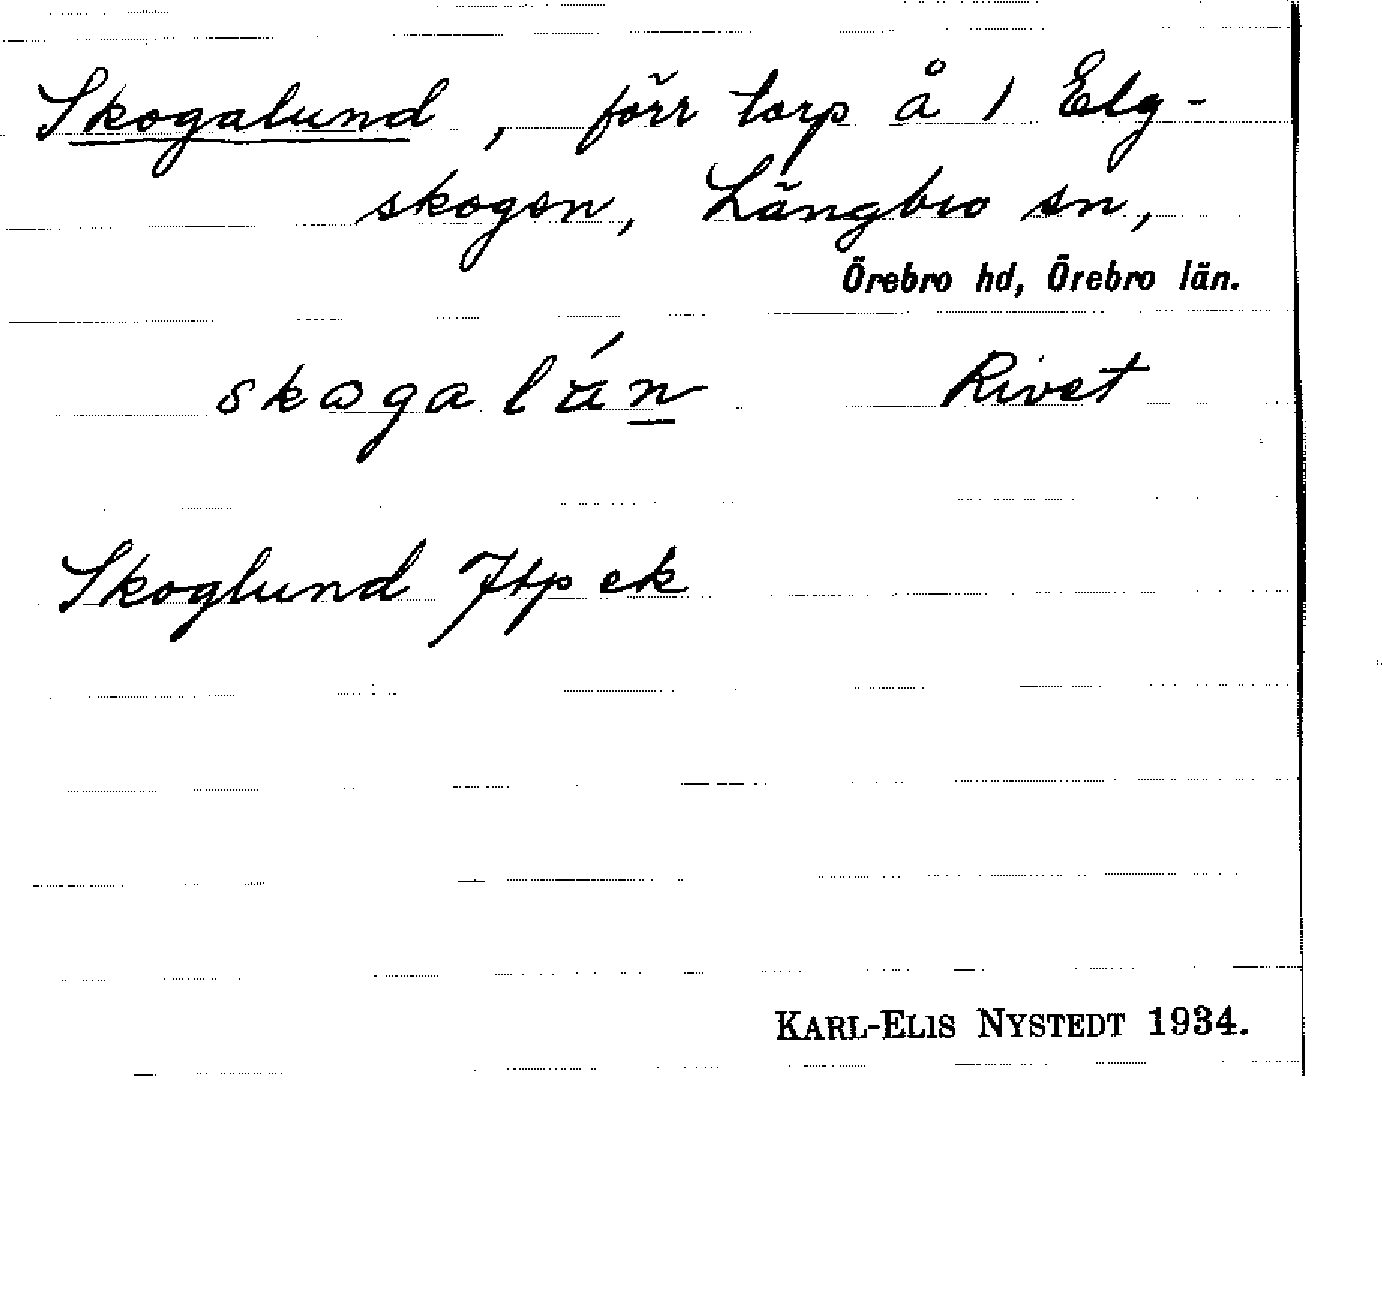 Skogalund, förr torp å 1 Elg-
skogen, Längbro sn,
Örebro hd, Örebro län.
skogalún Rivet
Skoglund Jtp ek
KARL-ELIS NYSTEDT 1934.